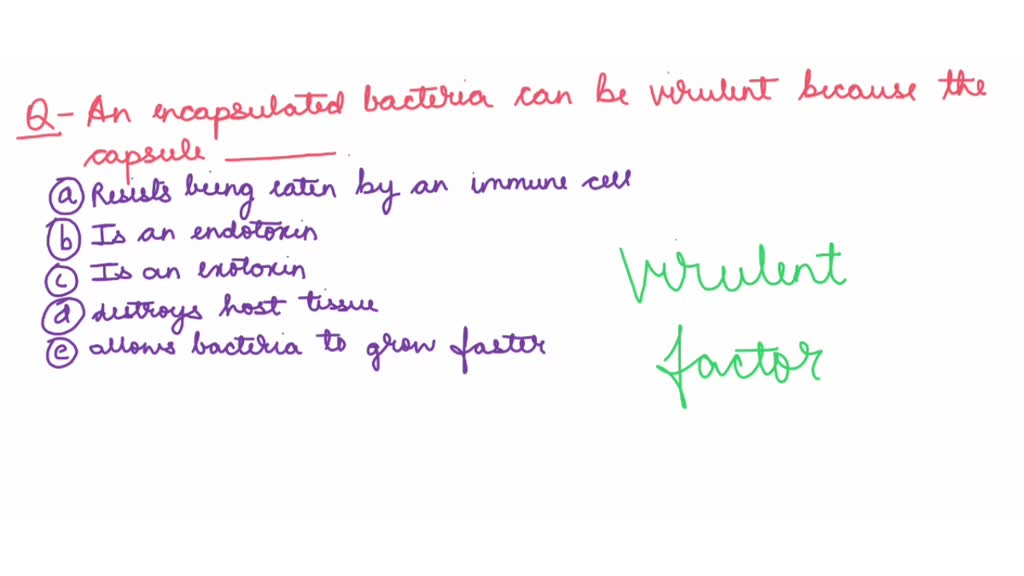 Q- An encapsulated bacteria can be virulent because the
capsule ______.
(a) Resists being eaten by an immune cell
(b) Is an endotoxin
(c) Is an exotoxin
(d) destroys host tissue
(e) allows bacteria to grow faster
Virulent
factor